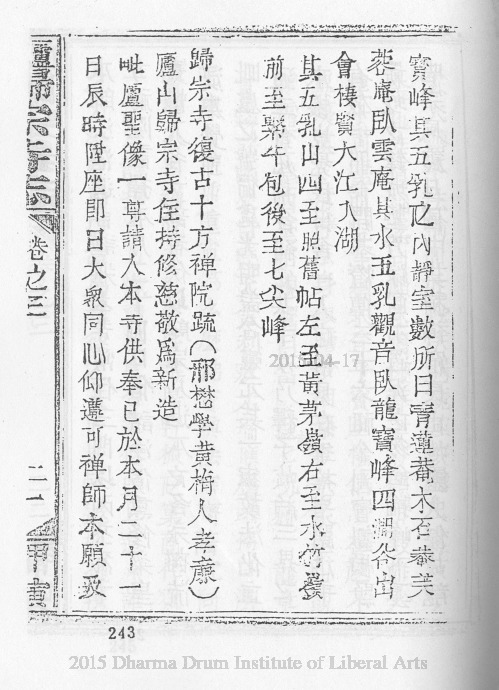 寶峰其五乳之內靜室數所曰青蓮菴木石菴芙
蓉庵臥雲庵其水五乳觀音臥龍寶峰四澗谷出
會棲賢大江入湖
其五乳山四至照舊帖左至黃茅嶺右至水竹嶺
前至聚牛包後至七尖峰
歸宗寺復古十方禪院疏（邢懋學黃梅人孝廉）
廬山歸宗寺住持修慈敬爲新造
毗盧聖像一尊請入本寺供奉已於本月二十一
日辰時陞座即日大衆同心仰遵可禪師本願永
廬山歸宗寺志
卷之三
二一
甲寅
243
2015-04-17
2015 Dharma Drum Institute of Liberal Arts